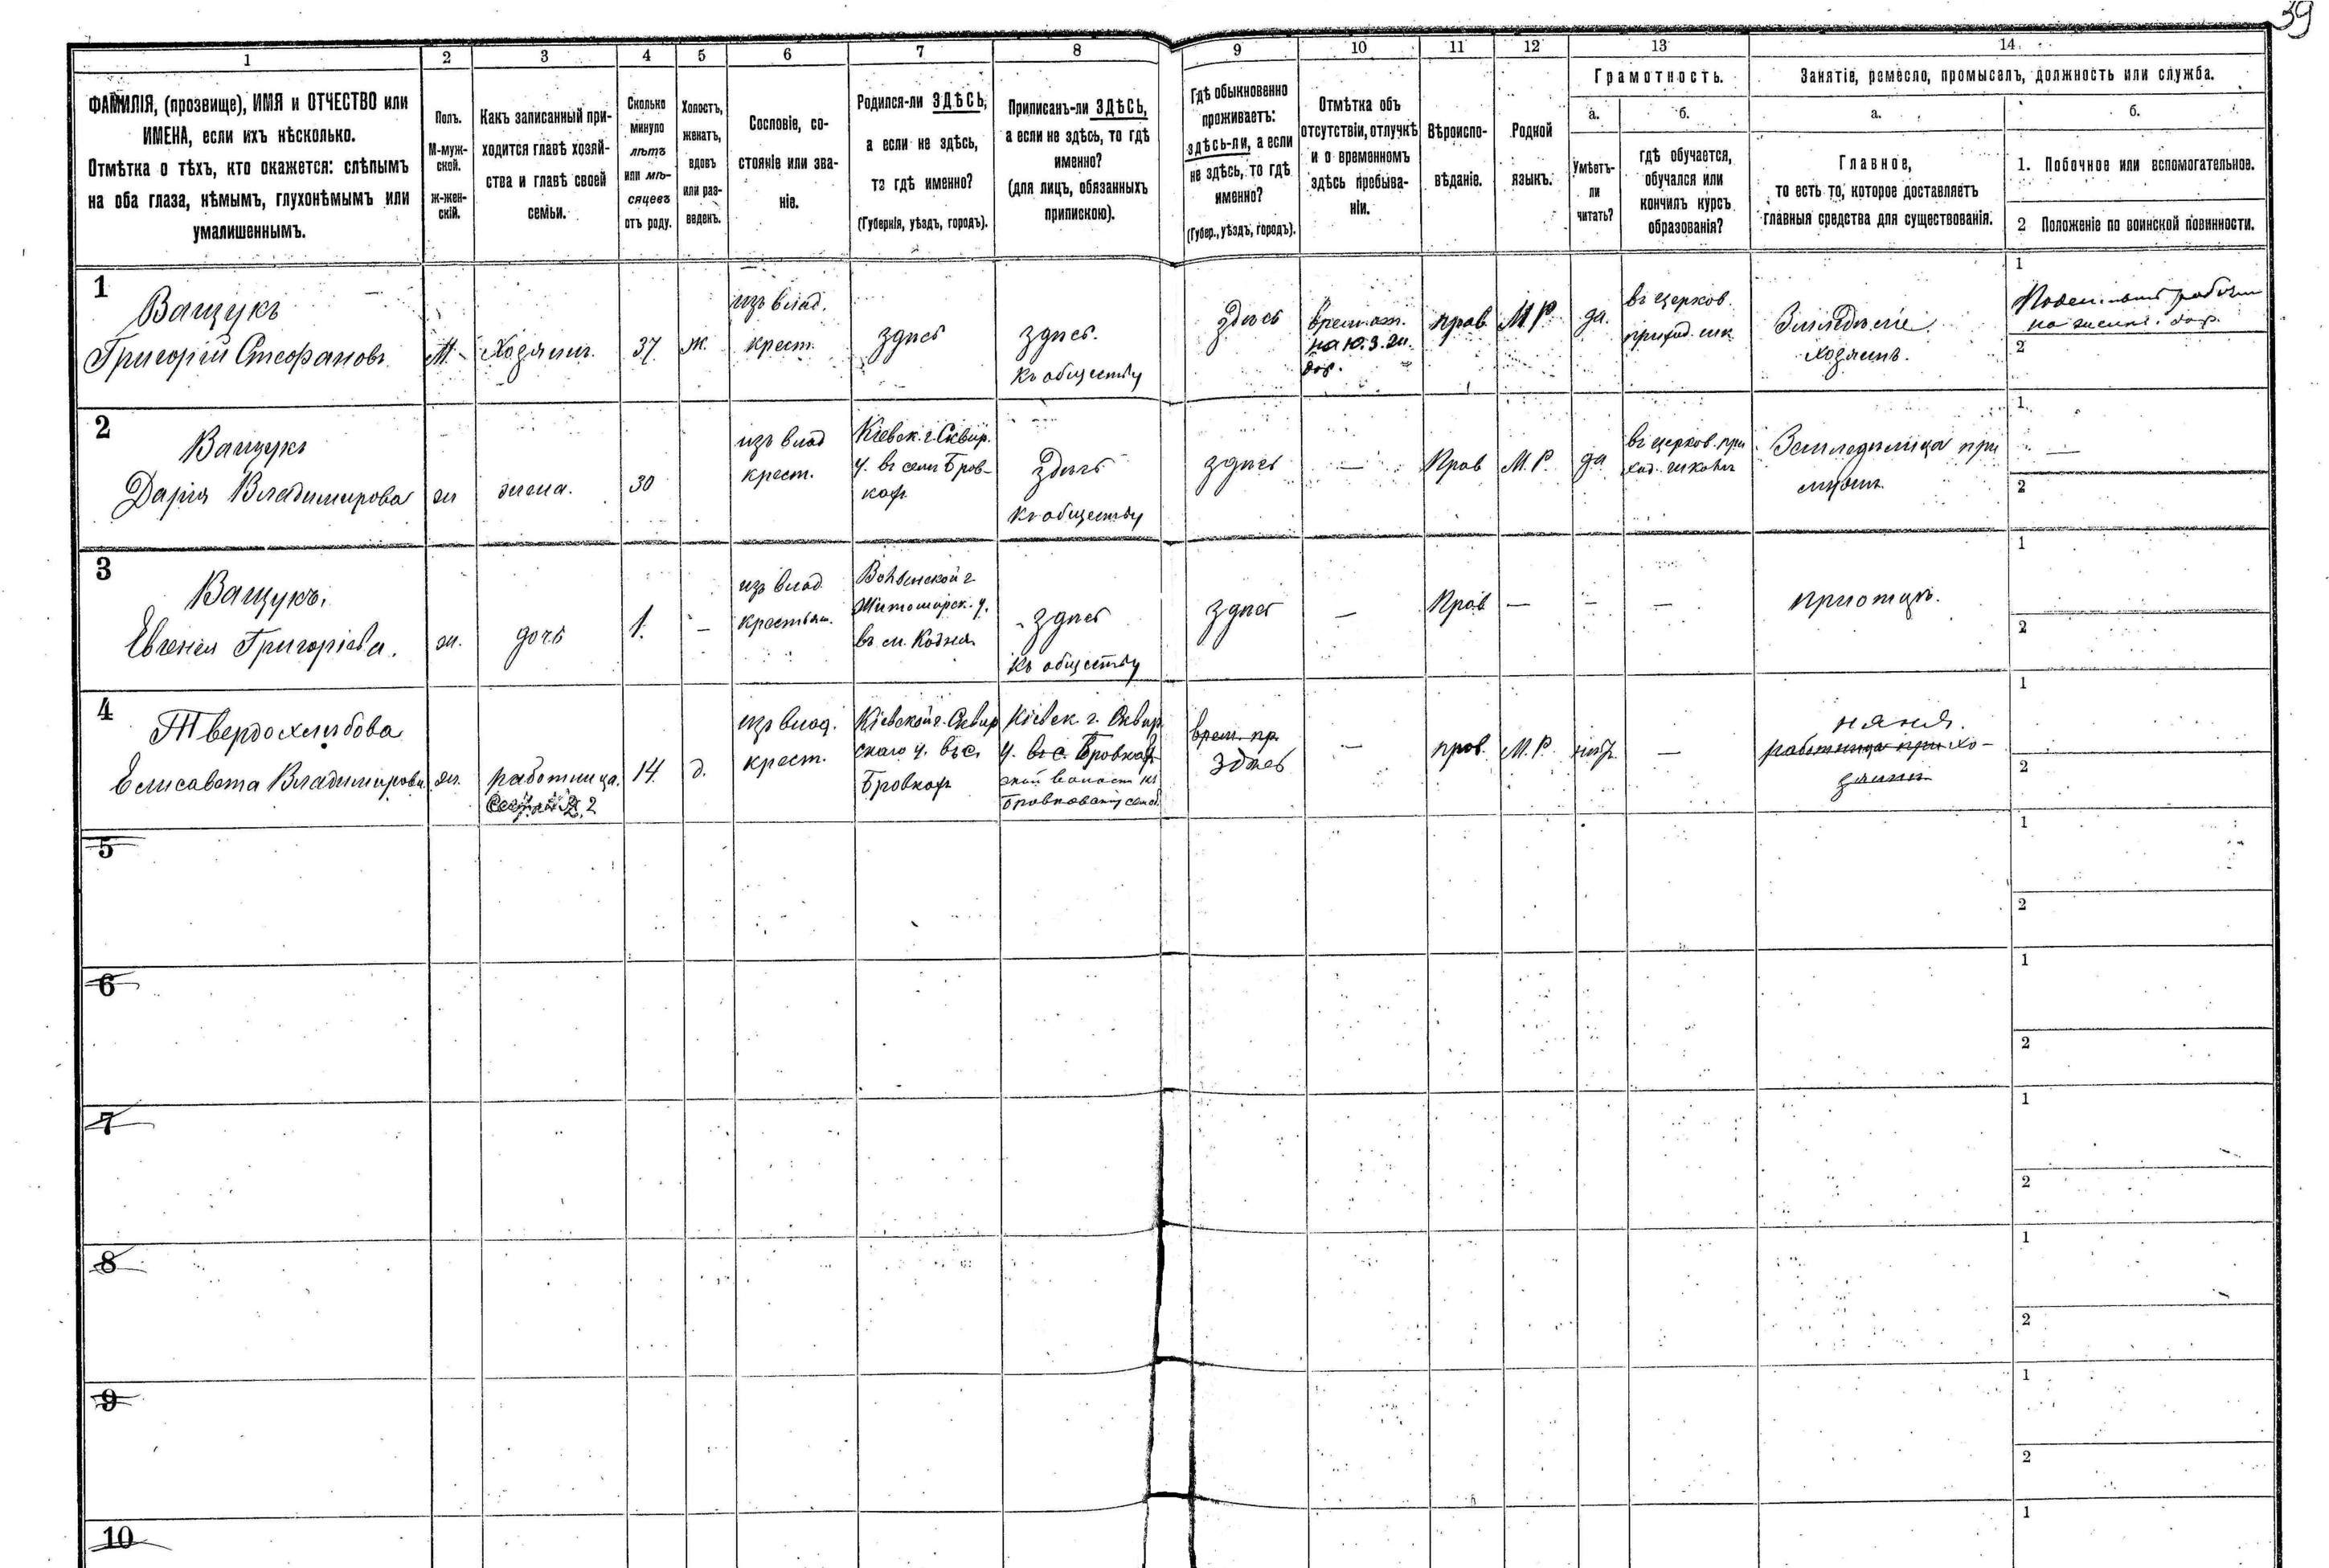 39
1 2 3 4 5 6 7 8 9 10 11 12 13 14
ФАМИЛІЯ, (прозвище), ИМЯ и ОТЧЕСТВО или
ИМЕНА, если ихъ нѣсколько.
Отмѣтка о тѣхъ, кто окажется: слѣпымъ
на оба глаза, нѣмымъ, глухонѣмымъ или
умалишеннымъ.
Полъ.
М-муж-
ской.
ж-жен-
скій.
Какъ записанный при-
ходится главѣ хозяй-
ства и главѣ своей
семьи.
Сколько
минуло
лѣтъ
или мѣ-
сяцевъ
отъ роду.
Холостъ,
женатъ,
вдовъ
или раз-
веденъ.
Сословіе, со-
стояніе или зва-
ніе.
Родился-ли ЗДѢСЬ,
а если не здѣсь,
то гдѣ именно?
(Губернія, уѣздъ, городъ).
Приписанъ-ли ЗДѢСЬ,
а если не здѣсь, то гдѣ
именно?
(для лицъ, обязанныхъ
припискою).
Гдѣ обыкновенно
проживаетъ:
здѣсь-ли, а если
не здѣсь, то гдѣ
именно?
(Губер., уѣздъ, городъ).
Отмѣтка объ
отсутствіи, отлучкѣ
и о временномъ
здѣсь пребыва-
ніи.
Вѣроиспо-
вѣданіе.
Родной
языкъ.
Грамотность.
а.
Умѣетъ-
ли
читать?
б.
гдѣ обучается,
обучался или
кончилъ курсъ
образованія?
Занятіе, ремесло, промыселъ, должность или служба.
а.
Главное,
то есть то, которое доставляетъ
главныя средства для существованія.
б.
1. Побочное или вспомогательное.
2 Положеніе по воинской повинности.
1
Ващукъ
Григорій Стефановъ
М.
Хозяинъ.
37
ж.
изъ влад.
крест.
здѣсь
здѣсь.
къ обществу
здѣсь
врем. от.
на Ю.З.
дор.
прав
М.Р.
да.
въ церков.
приход. шк.
Земледѣліе
хозяинъ.
1
2
2
Ващукъ
Дарія Владимирова
ж
жена.
30
изъ влад
крест.
Кіевск. г. Сквир.
у. въ селѣ Бров-
кахъ
здѣсь
къ обществу
здѣсь
—
Прав
М.Р.
да
въ церков. при
ход. школѣ
Земледѣлица при
мужѣ.
1
—
2
3
Ващукъ.
Евгенія Григоріева.
ж.
дочь
1.
—
изъ влад
крестьян.
Волынской г.
Житомирск. у.
въ м. Кодня
здѣсь
къ обществу
здѣсь
—
Прав
—
—
—
при отцѣ.
1
2
4
Твердохлѣбова
Елисавета Владимирова
ж.
работница.
14
д.
изъ влад.
крест.
Кіевской г. Сквир
скаго у. въ с.
Бровкахъ
Кіевск. г. Сквир
у. въ с. Бровков
ской волости къ
врем. пр.
здѣсь
—
прав.
М.Р.
нѣтъ
—
няня.
работница при хо-
зяинѣ
1
2
5
1
2
6
1
2
7
1
2
8
1
2
9
1
2
10
1